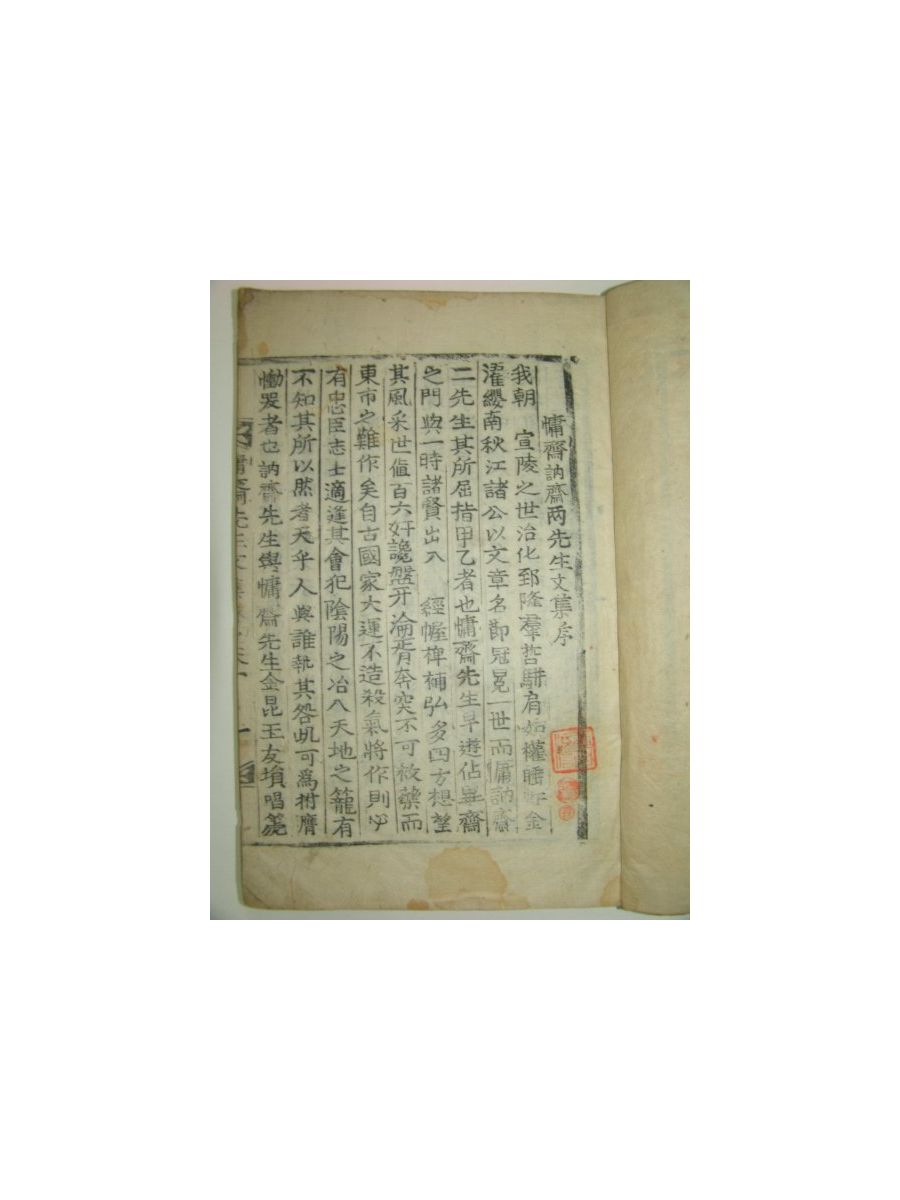 慵齋訥齋兩先生文集序
我朝 宣陵之世治化郅隆羣哲騈肩如權睡軒金
濯纓南秋江諸公以文章名節冠冕一世而慵訥齋
二先生其所屈指甲乙者也慵齋先生早遊佔畢齋
之門與一時諸賢出入 經幄裨補弘多四方想望
其風采世値百六奸讒盤牙淪胥奔突不可救藥而
東市之難作矣自古國家大運不造殺氣將作則必
有忠臣志士適逢其會犯陰陽之冶入天地之籠有
不知其所以然者天乎人與誰執其咎此可爲拊膺
慟哭者也訥齋先生與慵齋先生金昆玉友塤唱篪
慵齋先生文集